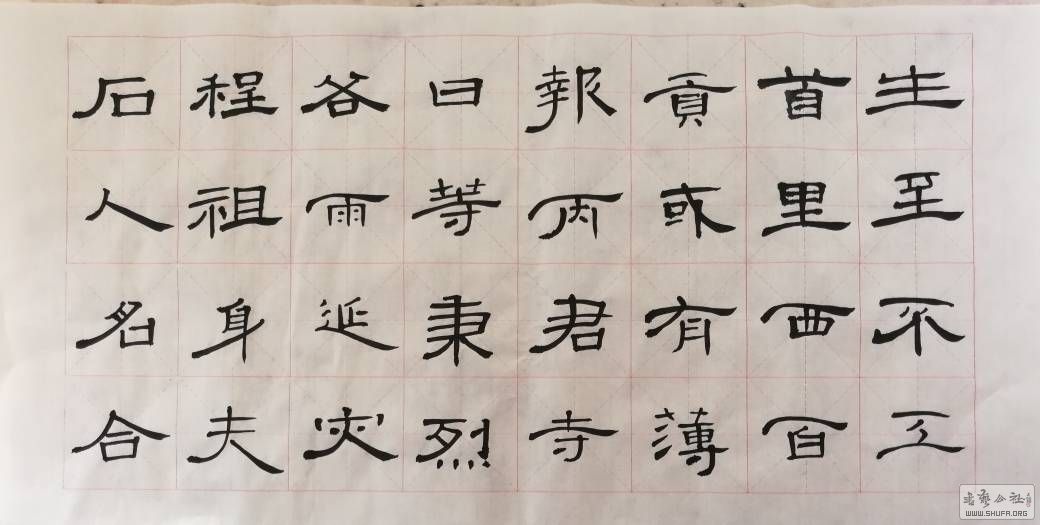 生至不
首里西百
貢或有薄
報丙君寺
曰等秉烈
各雨延
程祖身夫
石人名合
書藝公社
WWW.SHUFA.ORG